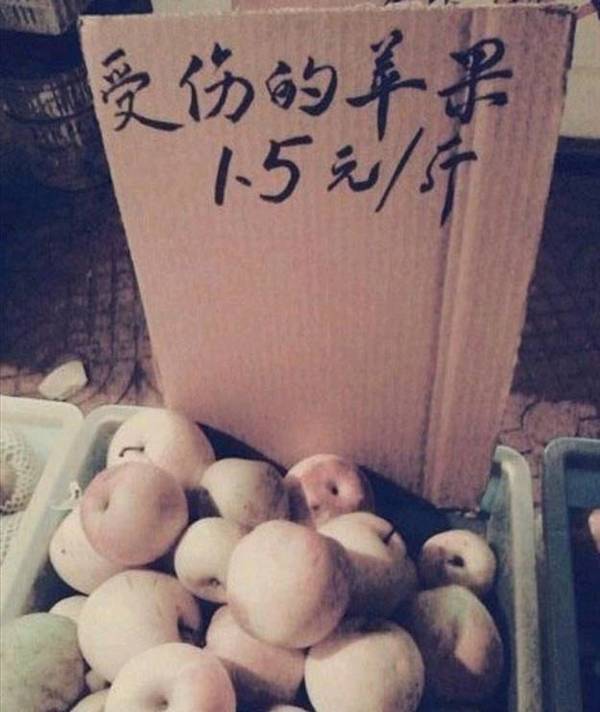 受伤的苹果
1.5元/斤